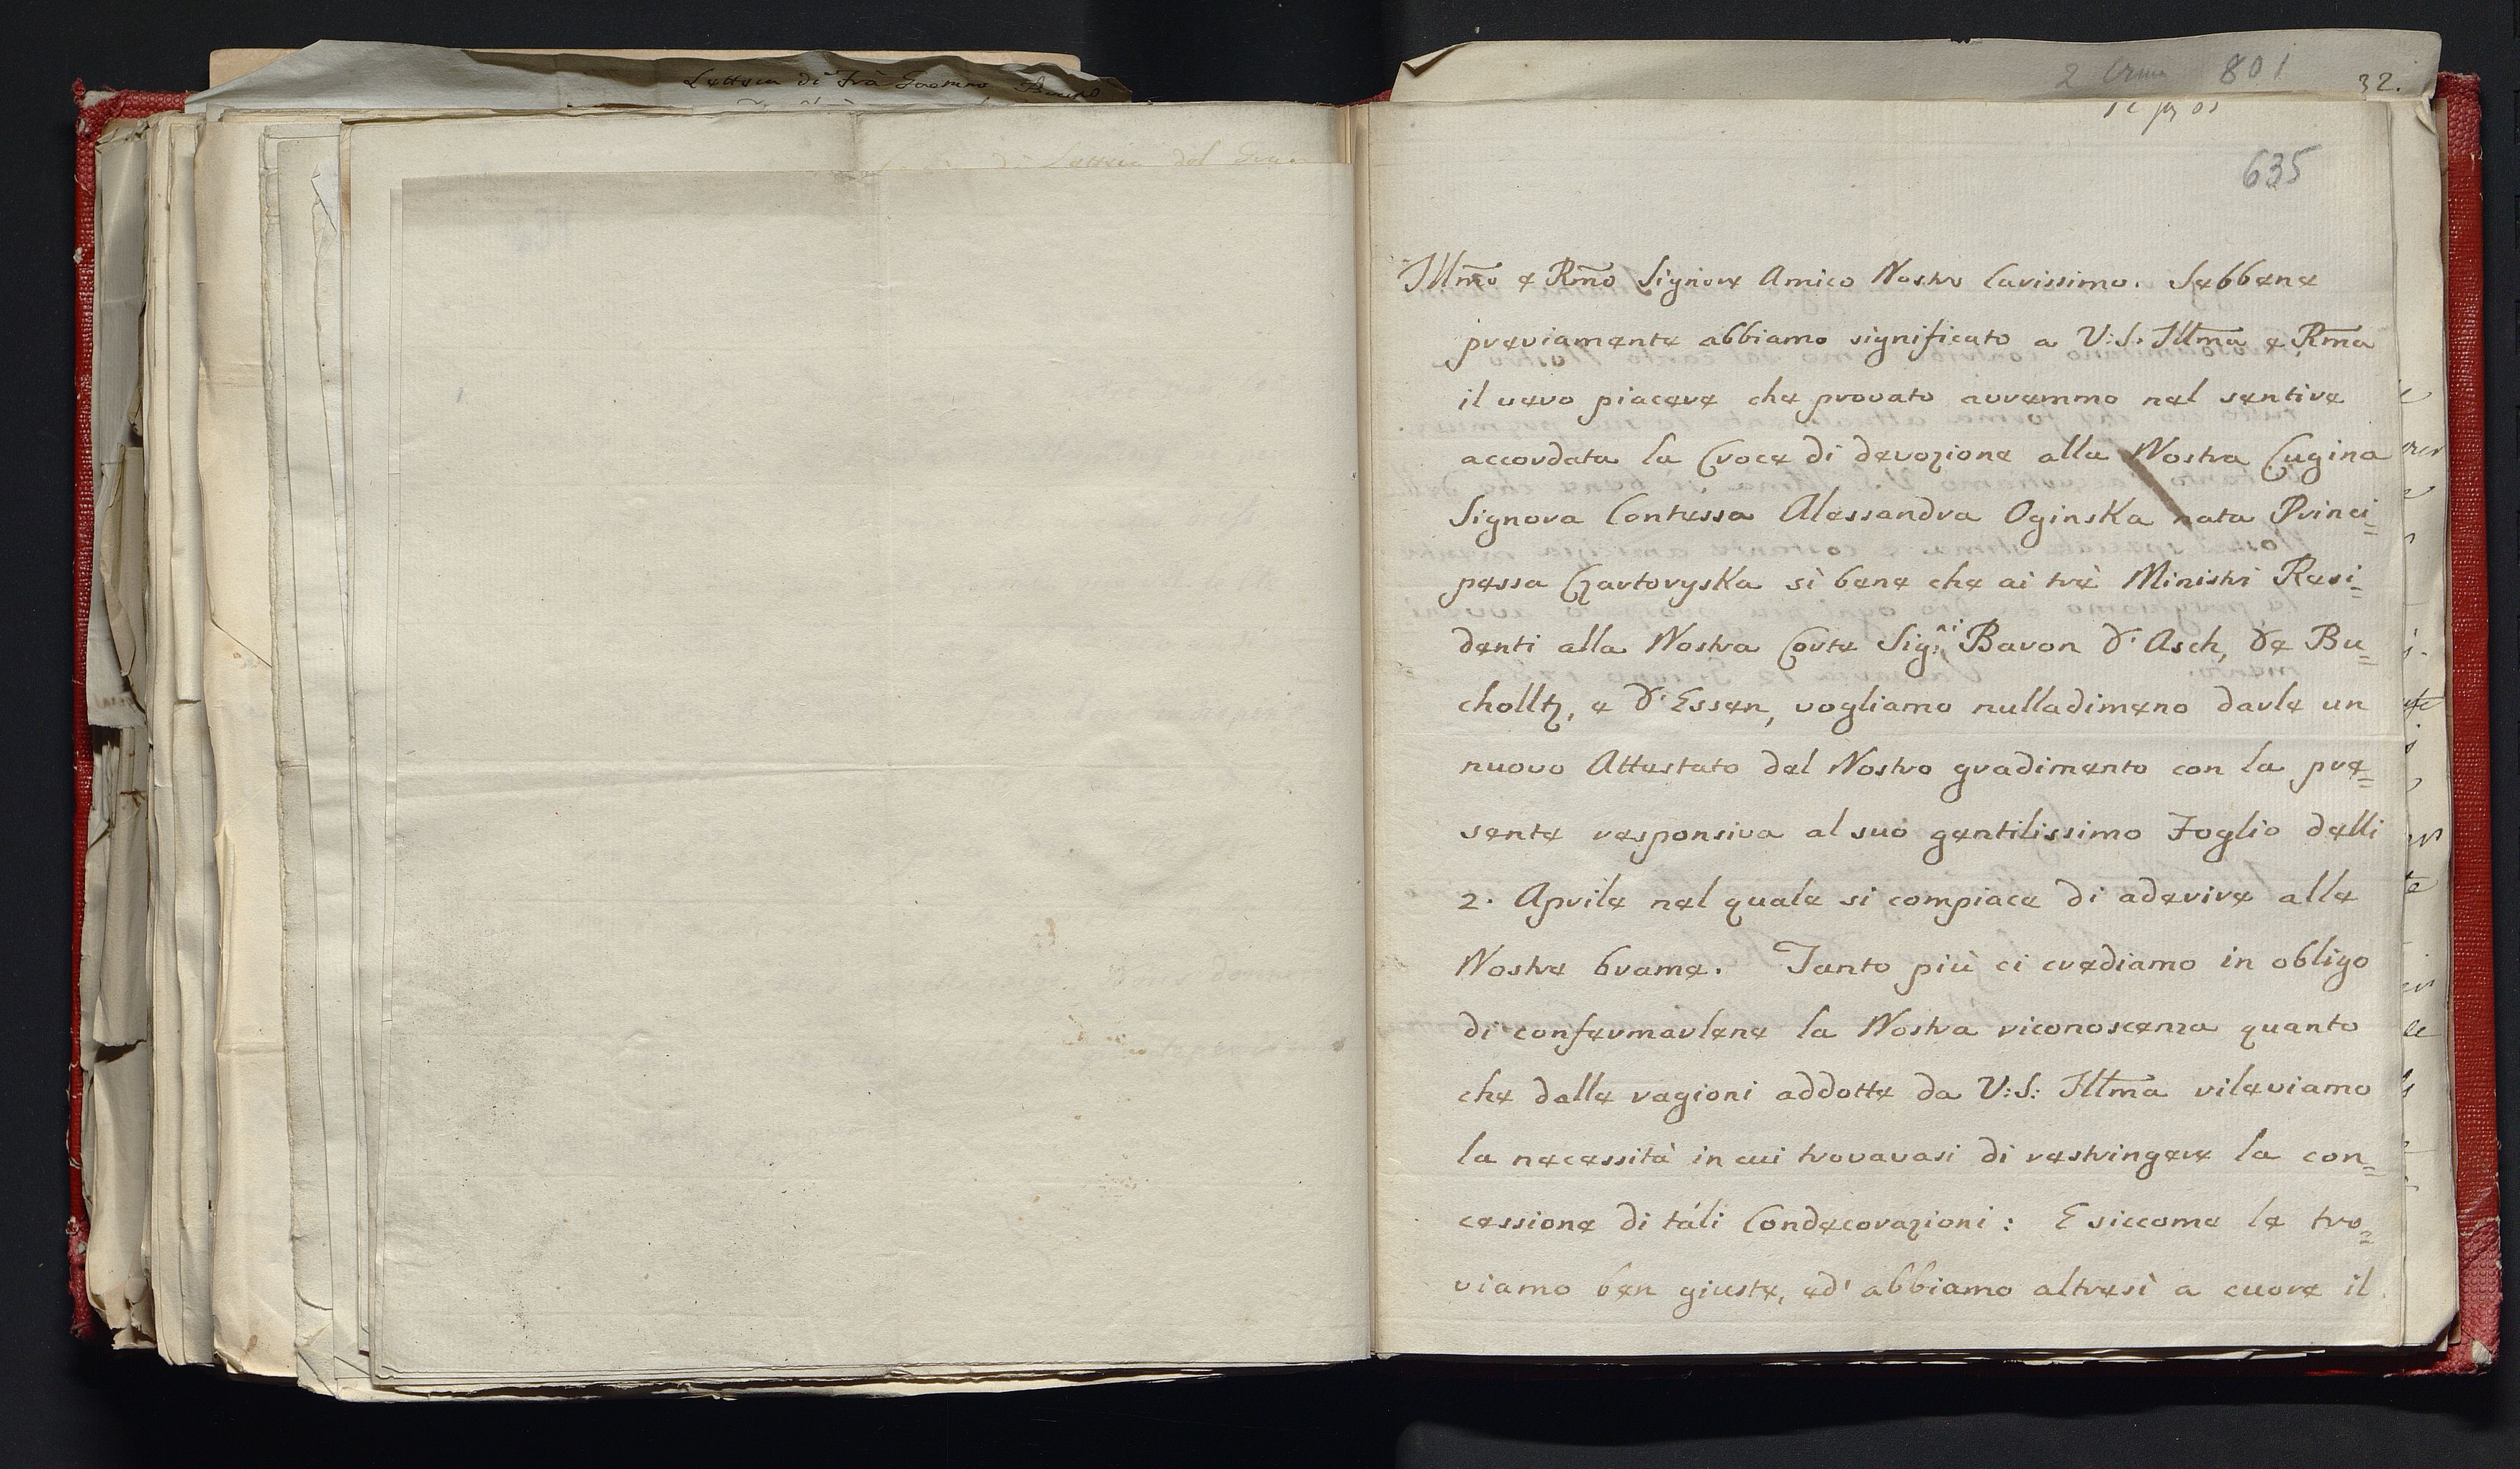 Lettera di frà
32.
801
635
Illm̃o e Rm̃o Signore Amico Nostro Carissimo. Sebbene
previamente abbiamo significato a V:S. Illm̃a e Rm̃a
il vero piacere che provato avremmo nel sentire
accordata la Croce di devozione alla Nostra Cugina
Signora Contessa Alessandra Oginska nata Princi=
pessa Czartoryska sì bene che ai trè Ministri Resi=
denti alla Nostra Corte Sig:ri Baron d'Asch, de Bu=
choltz, e d'Essen, vogliamo nulladimeno darle un
nuovo Attestato del Nostro gradimento con la pre=
sente responsiva al suo gentilissimo Foglio delli
2. Aprile nel quale si compiace di aderire alle
Nostre brame. Tanto più ci crediamo in obligo
di confermarlene la Nostra riconoscenza quanto
che dalle ragioni addotte da V:S: Illm̃a rileviamo
la necessità in cui trovavasi di restringere la con=
cessione di tàli Condecorazioni: E siccome le tro=
viamo ben giuste, ed' abbiamo altresì a cuore il